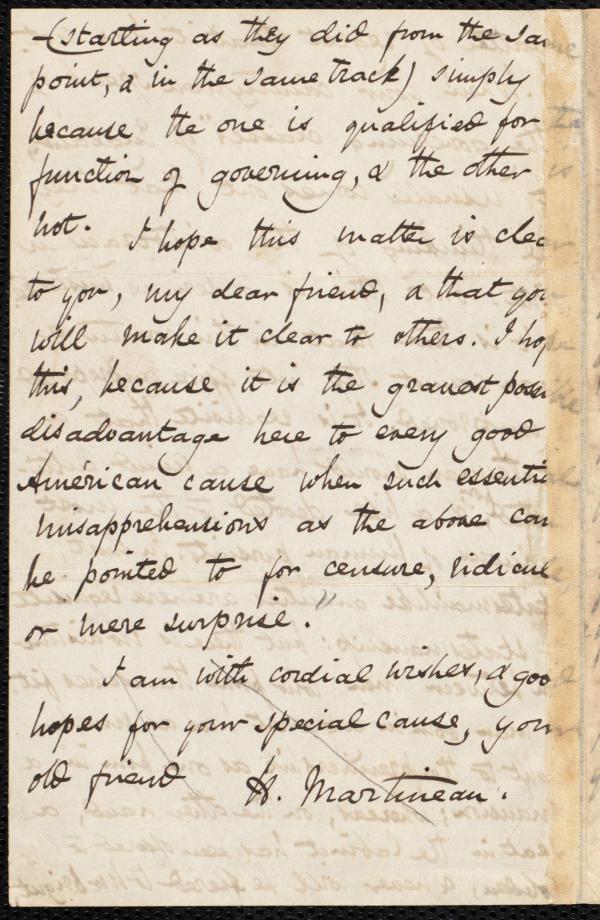 (starting as they did from the same
point, & in the same track) simply
because the one is qualified for the
function of governing, & the other is
not. I hope this matter is clear
to you, my dear friend, & that you
will make it clear to others. I hope
this, because it is the gravest possi
disadvantage here to every good
American cause when such essential
misapprehensions as the above can
be pointed to for censure, ridicule,
or mere surprise."
I am with cordial wishes, & good
hopes for your special cause, your
old friend H. Martineau.